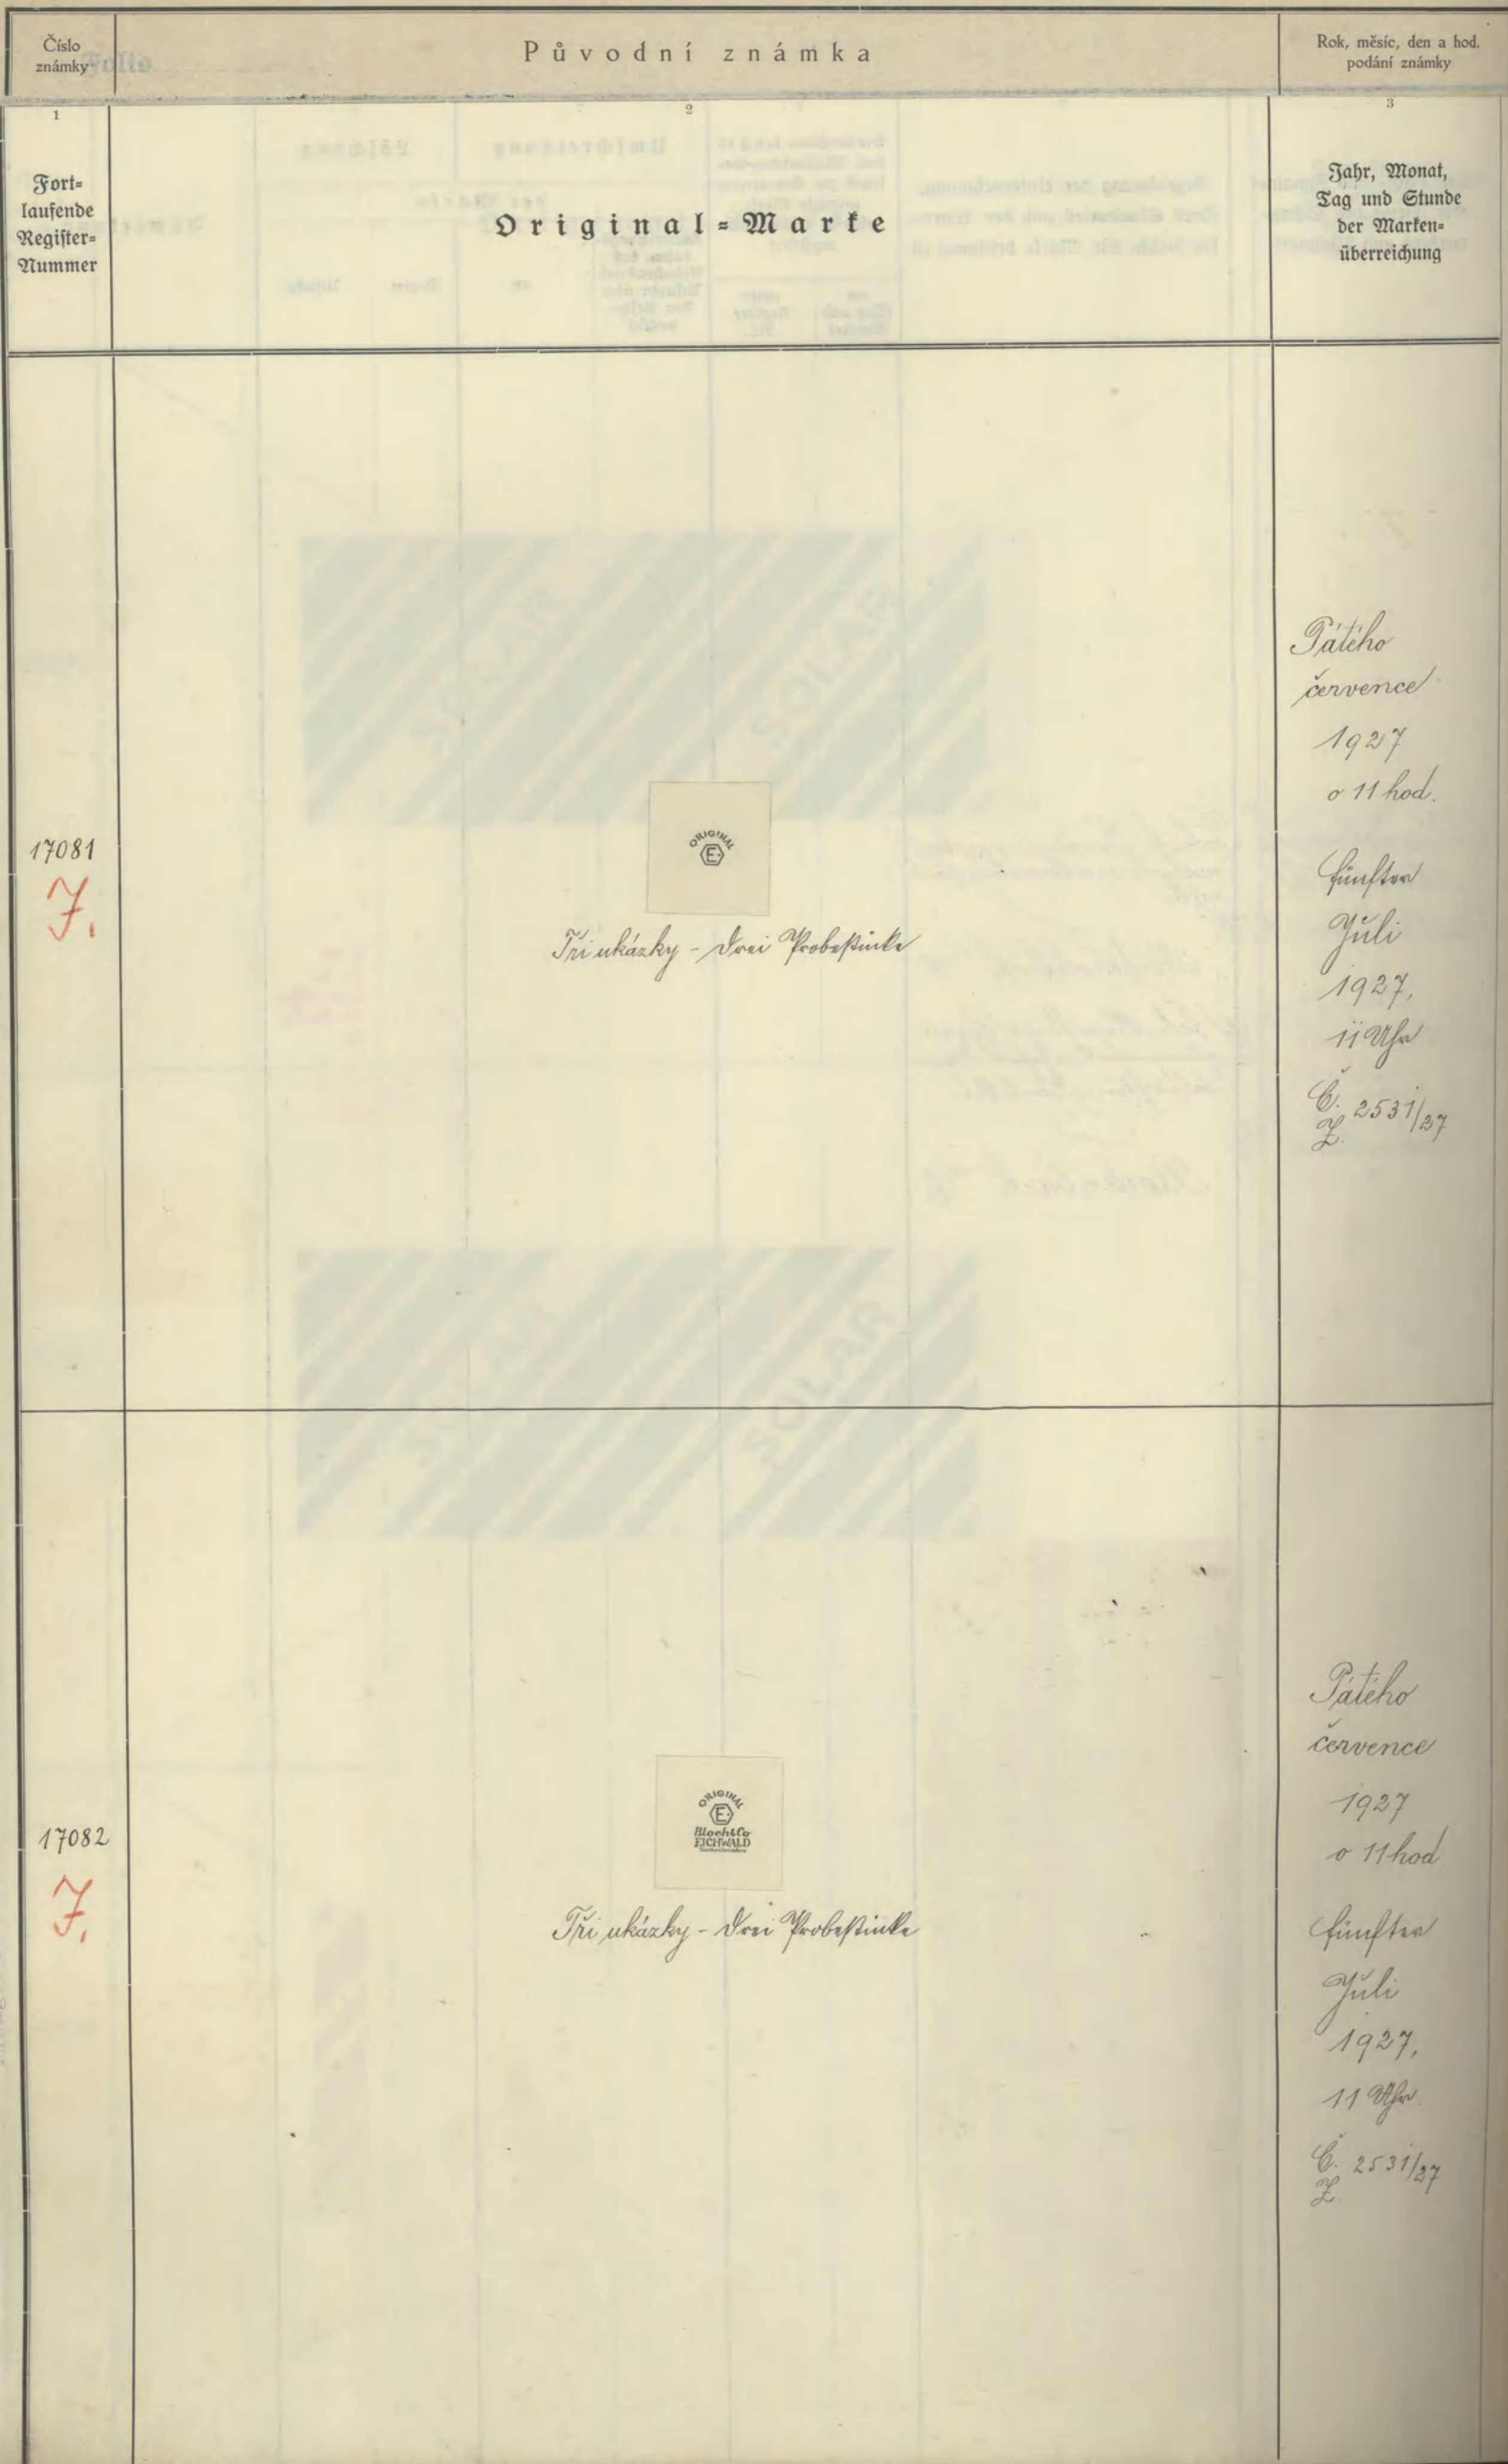 Číslo
známky
Původní známka
Rok, měsíc, den a hod.
podání známky
1
2
3
Fort-
laufende
Register-
Nummer
Original-Marke
Jahr, Monat,
Tag und Stunde
der Marken-
überreichung
17081
7.
ORIGINAL
E
Tři ukázky - Drei Probestücke
Pátého
července
1927
o 11 hod.
fünfter
Juli
1927,
11 Uhr
Č. 2531/27
Z.
17082
7.
ORIGINAL
E
Bloch & Co
EICHWALD
Tři ukázky - Drei Probestücke
Pátého
července
1927
o 11 hod
fünfter
Juli
1927,
11 Uhr.
Č. 2531/27
Z.